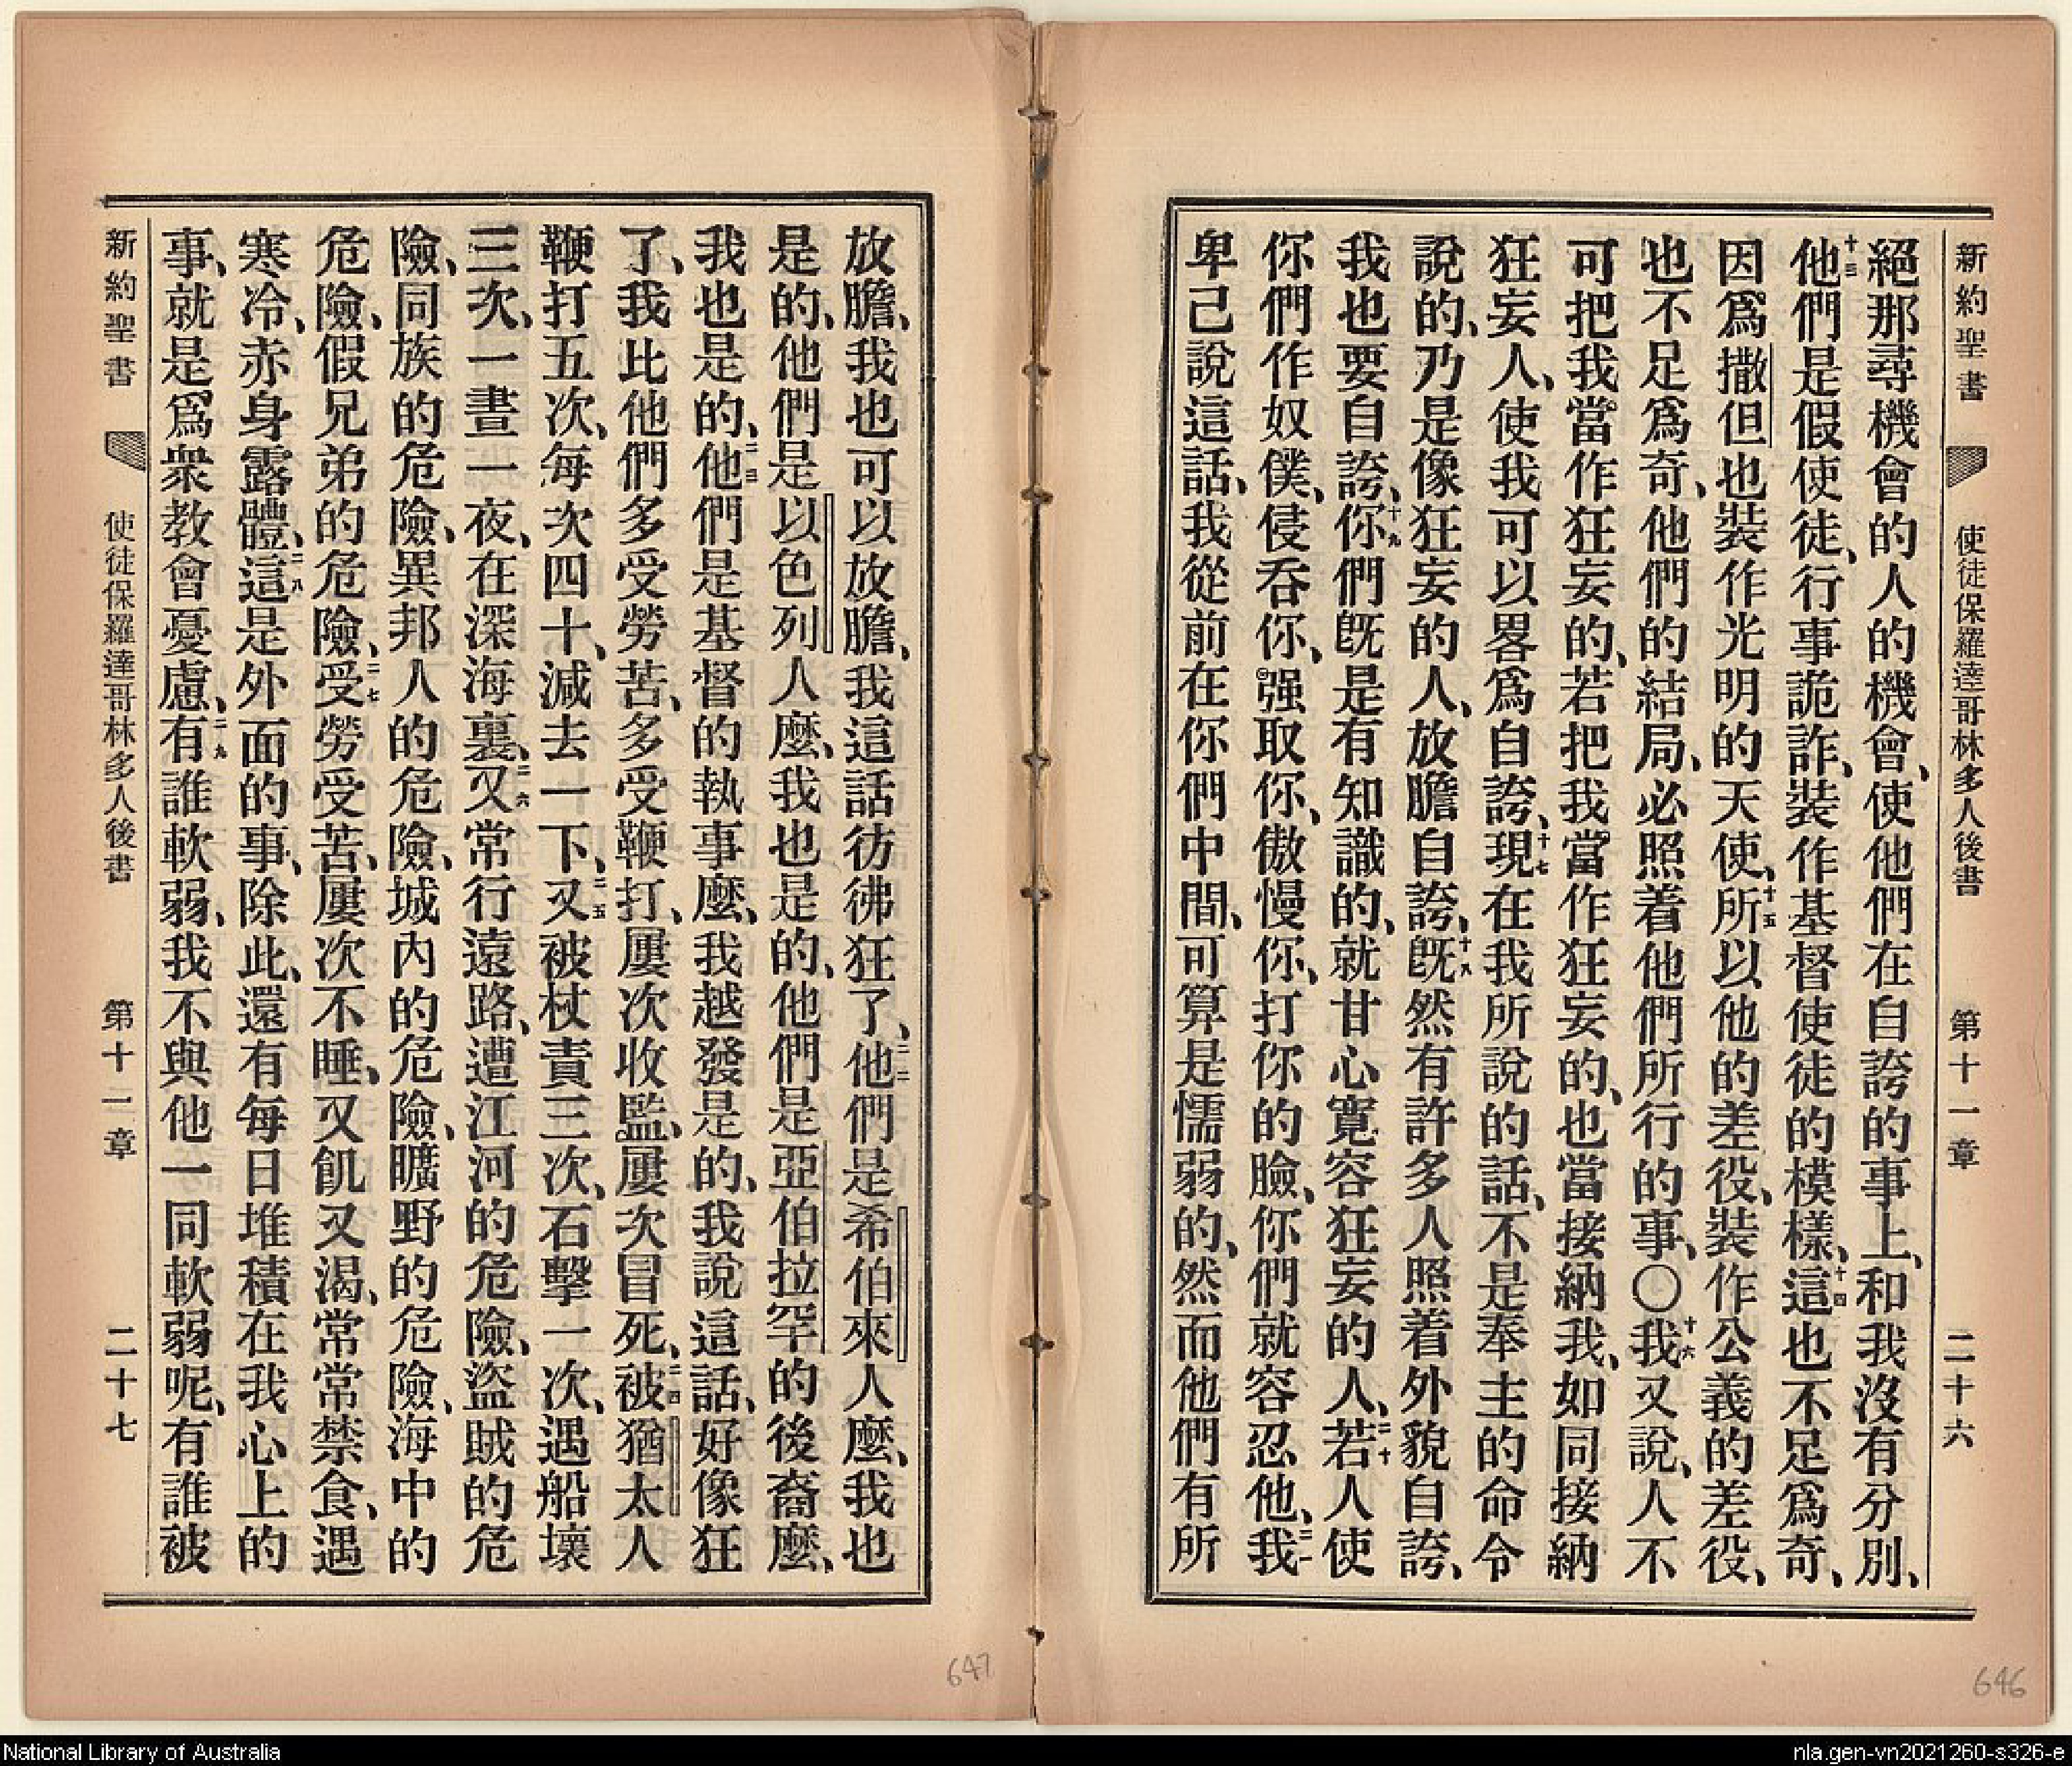 新約聖書 使徒保羅達哥林多人後書 第十一章 二十六
絕那尋機會的人的機會、使他們在自誇的事上、和我沒有分別、
十三他們是假使徒、行事詭詐、裝作基督使徒的模樣、十四這也不足爲奇、
因爲撒但也裝作光明的天使、十五所以他的差役、裝作公義的差役、
也不足爲奇、他們的結局、必照着他們所行的事、〇十六我又說、人不
可把我當作狂妄的、若把我當作狂妄的、也當接納我、如同接納
狂妄人、使我可以畧爲自誇、十七現在我所說的話、不是奉主的命令
說的、乃是像狂妄的人、放膽自誇、十八旣然有許多人照着外貌自誇、
我也要自誇、十九你們旣是有知識的、就甘心寬容狂妄的人、二十若人使
你們作奴僕、侵吞你、强取你、傲慢你、打你的臉、你們就容忍他、二一我
卑己說這話、我從前在你們中間、可算是懦弱的、然而他們有所
放膽、我也可以放膽、我這話彷彿狂了、二二他們是希伯來人麼、我也
是的、他們是以色列人麼、我也是的、他們是亞伯拉罕的後裔麼、
我也是的、二三他們是基督的執事麼、我越發是的、我說這話、好像狂
了、我比他們多受勞苦、多受鞭打、屢次收監、屢次冒死、二四被猶太人
鞭打五次、每次四十、減去一下、二五又被杖責三次、石擊一次、遇船壞
三次、一晝一夜、在深海裏、二六又常行遠路、遭江河的危險、盜賊的危
險、同族的危險、異邦人的危險、城內的危險、曠野的危險、海中的
危險、假兄弟的危險、二七受勞受苦、屢次不睡、又飢又渴、常常禁食、遇
寒冷、赤身露體、二八這是外面的事、除此、還有每日堆積在我心上的
事、就是爲衆教會憂慮、二九有誰軟弱、我不與他一同軟弱呢、有誰被
新約聖書 使徒保羅達哥林多人後書 第十一章 二十七
647
646
National Library of Australia
nla.gen-vn2021260-s326-e